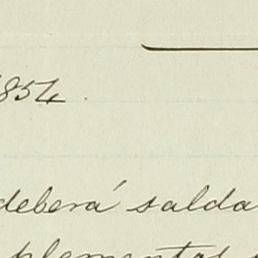 1854.
deberá salda
plementos